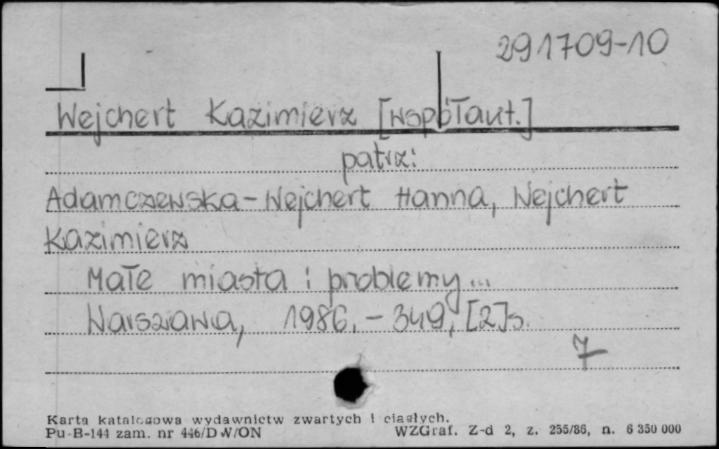 291709-10
Wejchert Kazimierz [współaut.]
patrz:
Adamczewska-Wejchert Hanna, Wejchert
Kazimierz
Małe miasta : problemy...
Warszawa, 1986. - 349, [2]s.
7
Karta katalogowa wydawnictw zwartych i ciągłych.
Pu-B-144 zam. nr 446/DW/ON WZGraf. Z-d 2, z. 255/86, n. 6 350 000